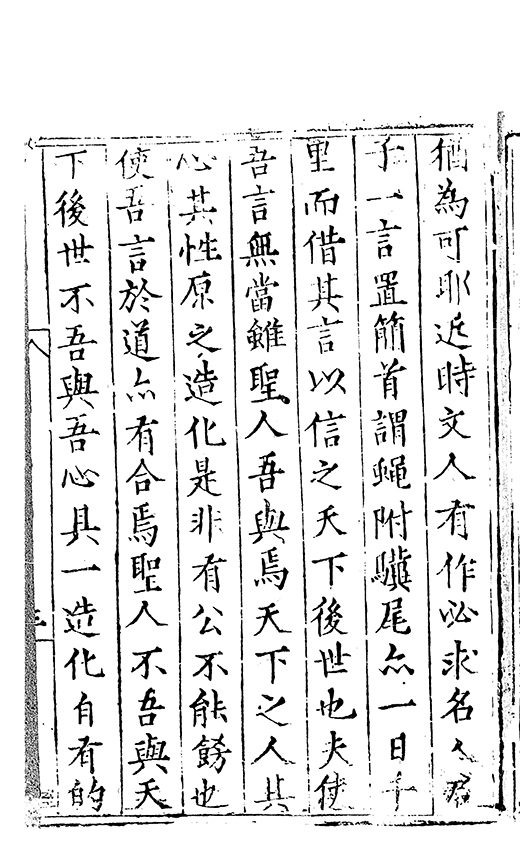 猶為可耶近時文人有作必求名人君
子一言置簡首謂蠅附驥尾亦一日千
里而借其言以信之天下後世也夫使
吾言無當雖聖人吾與焉天下之人其
心其性原之造化是非有公不能餝也
使吾言於道亦有合焉聖人不吾與天
下後世不吾與吾心具一造化自有的